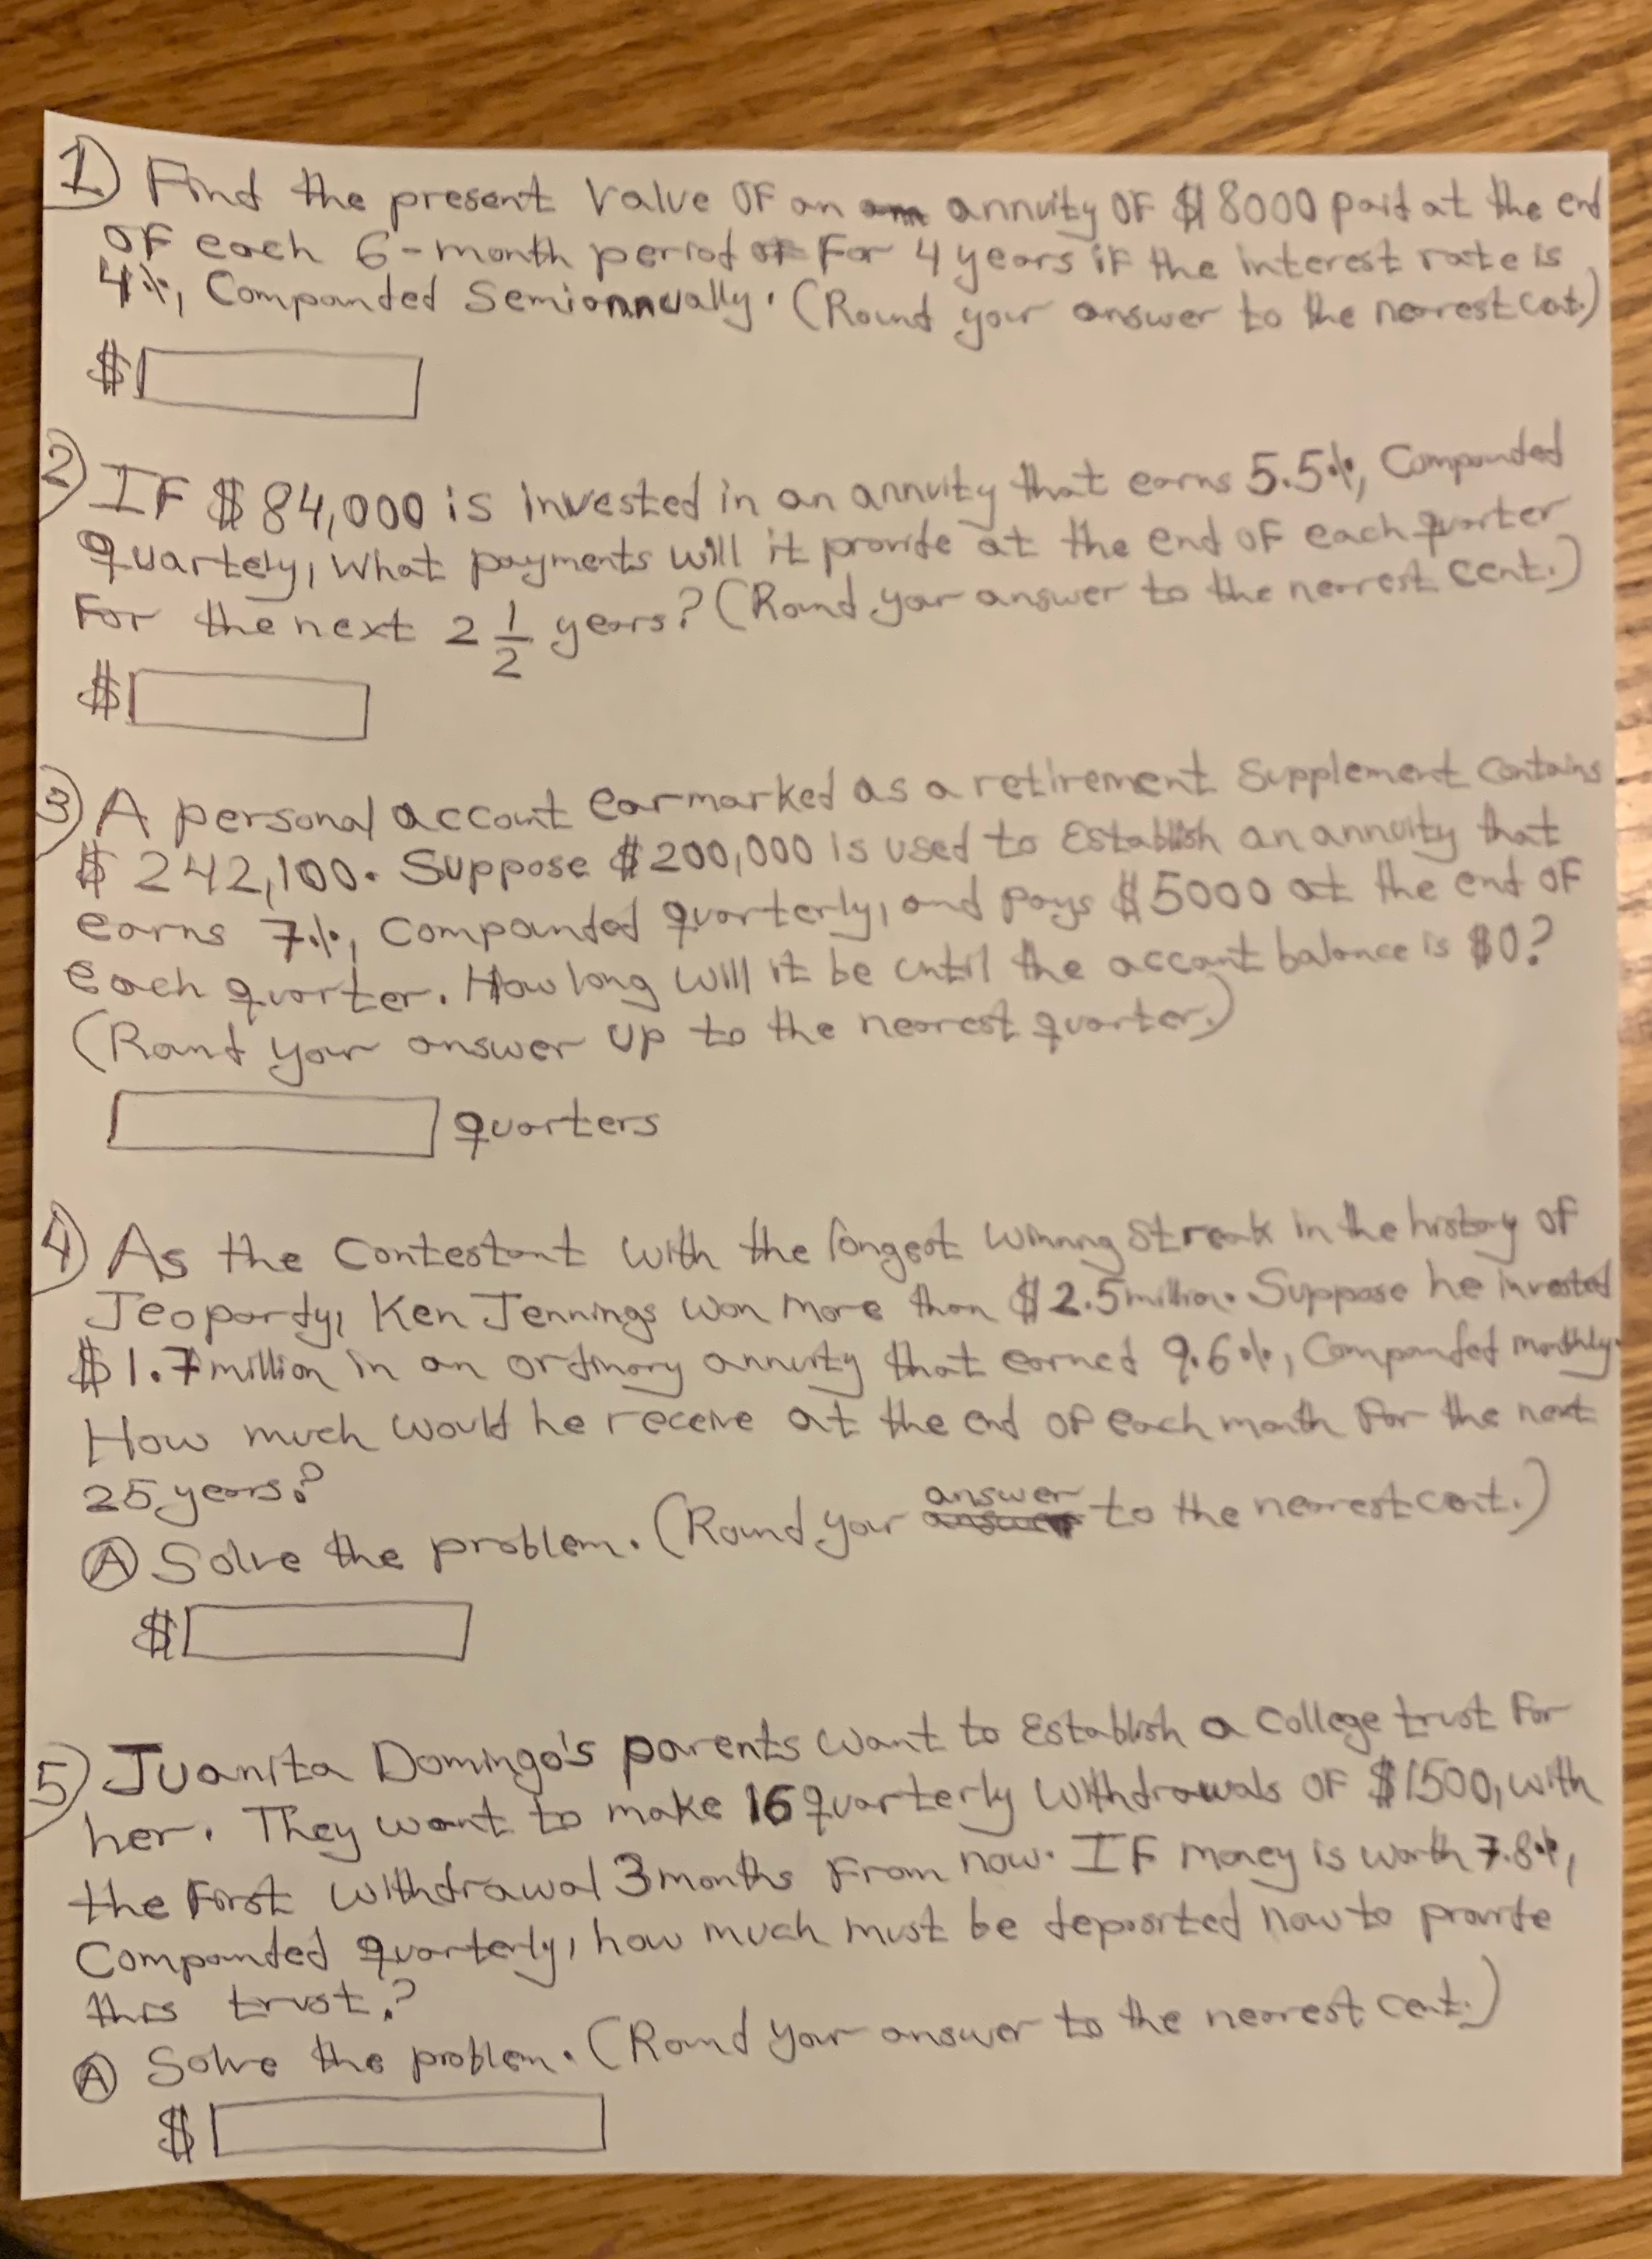 1) Find the present value of an annuity of $8000 paid at the end
of each 6-month period for 4 years if the interest rate is
4%, Compounded Semiannually. (Round your answer to the nearest cent.)
$
2) If $84,000 is invested in an annuity that earns 5.5%, Compounded
quartely, what payments will it provide at the end of each quarter
for the next 2 1/2 years? (Round your answer to the nearest cent.)
$
3) A personal account earmarked as a retirement supplement contains
$242,100. Suppose $200,000 is used to establish an annuity that
earns 7%, compounded quarterly, and pays $5000 at the end of
each quarter. How long will it be until the account balance is $0?
(Round your answer up to the nearest quarter.)
quarters
4) As the contestant with the longest winning streak in the history of
Jeopardy, Ken Jennings won more than $2.5 million. Suppose he invested
$1.7 million in an ordinary annuity that earned 9.6%, Compounded monthly.
How much would he receive at the end of each month for the next
25 years?
A Solve the problem. (Round your answer to the nearest cent.)
$
5) Juanita Domingo's parents want to establish a college trust for
her. They want to make 16 quarterly withdrawals of $1500, with
the first withdrawal 3 months from now. If money is worth 7.8%,
Compounded quarterly, how much must be deposited now to provide
this trust?
A Solve the problem. (Round your answer to the nearest cent.)
$